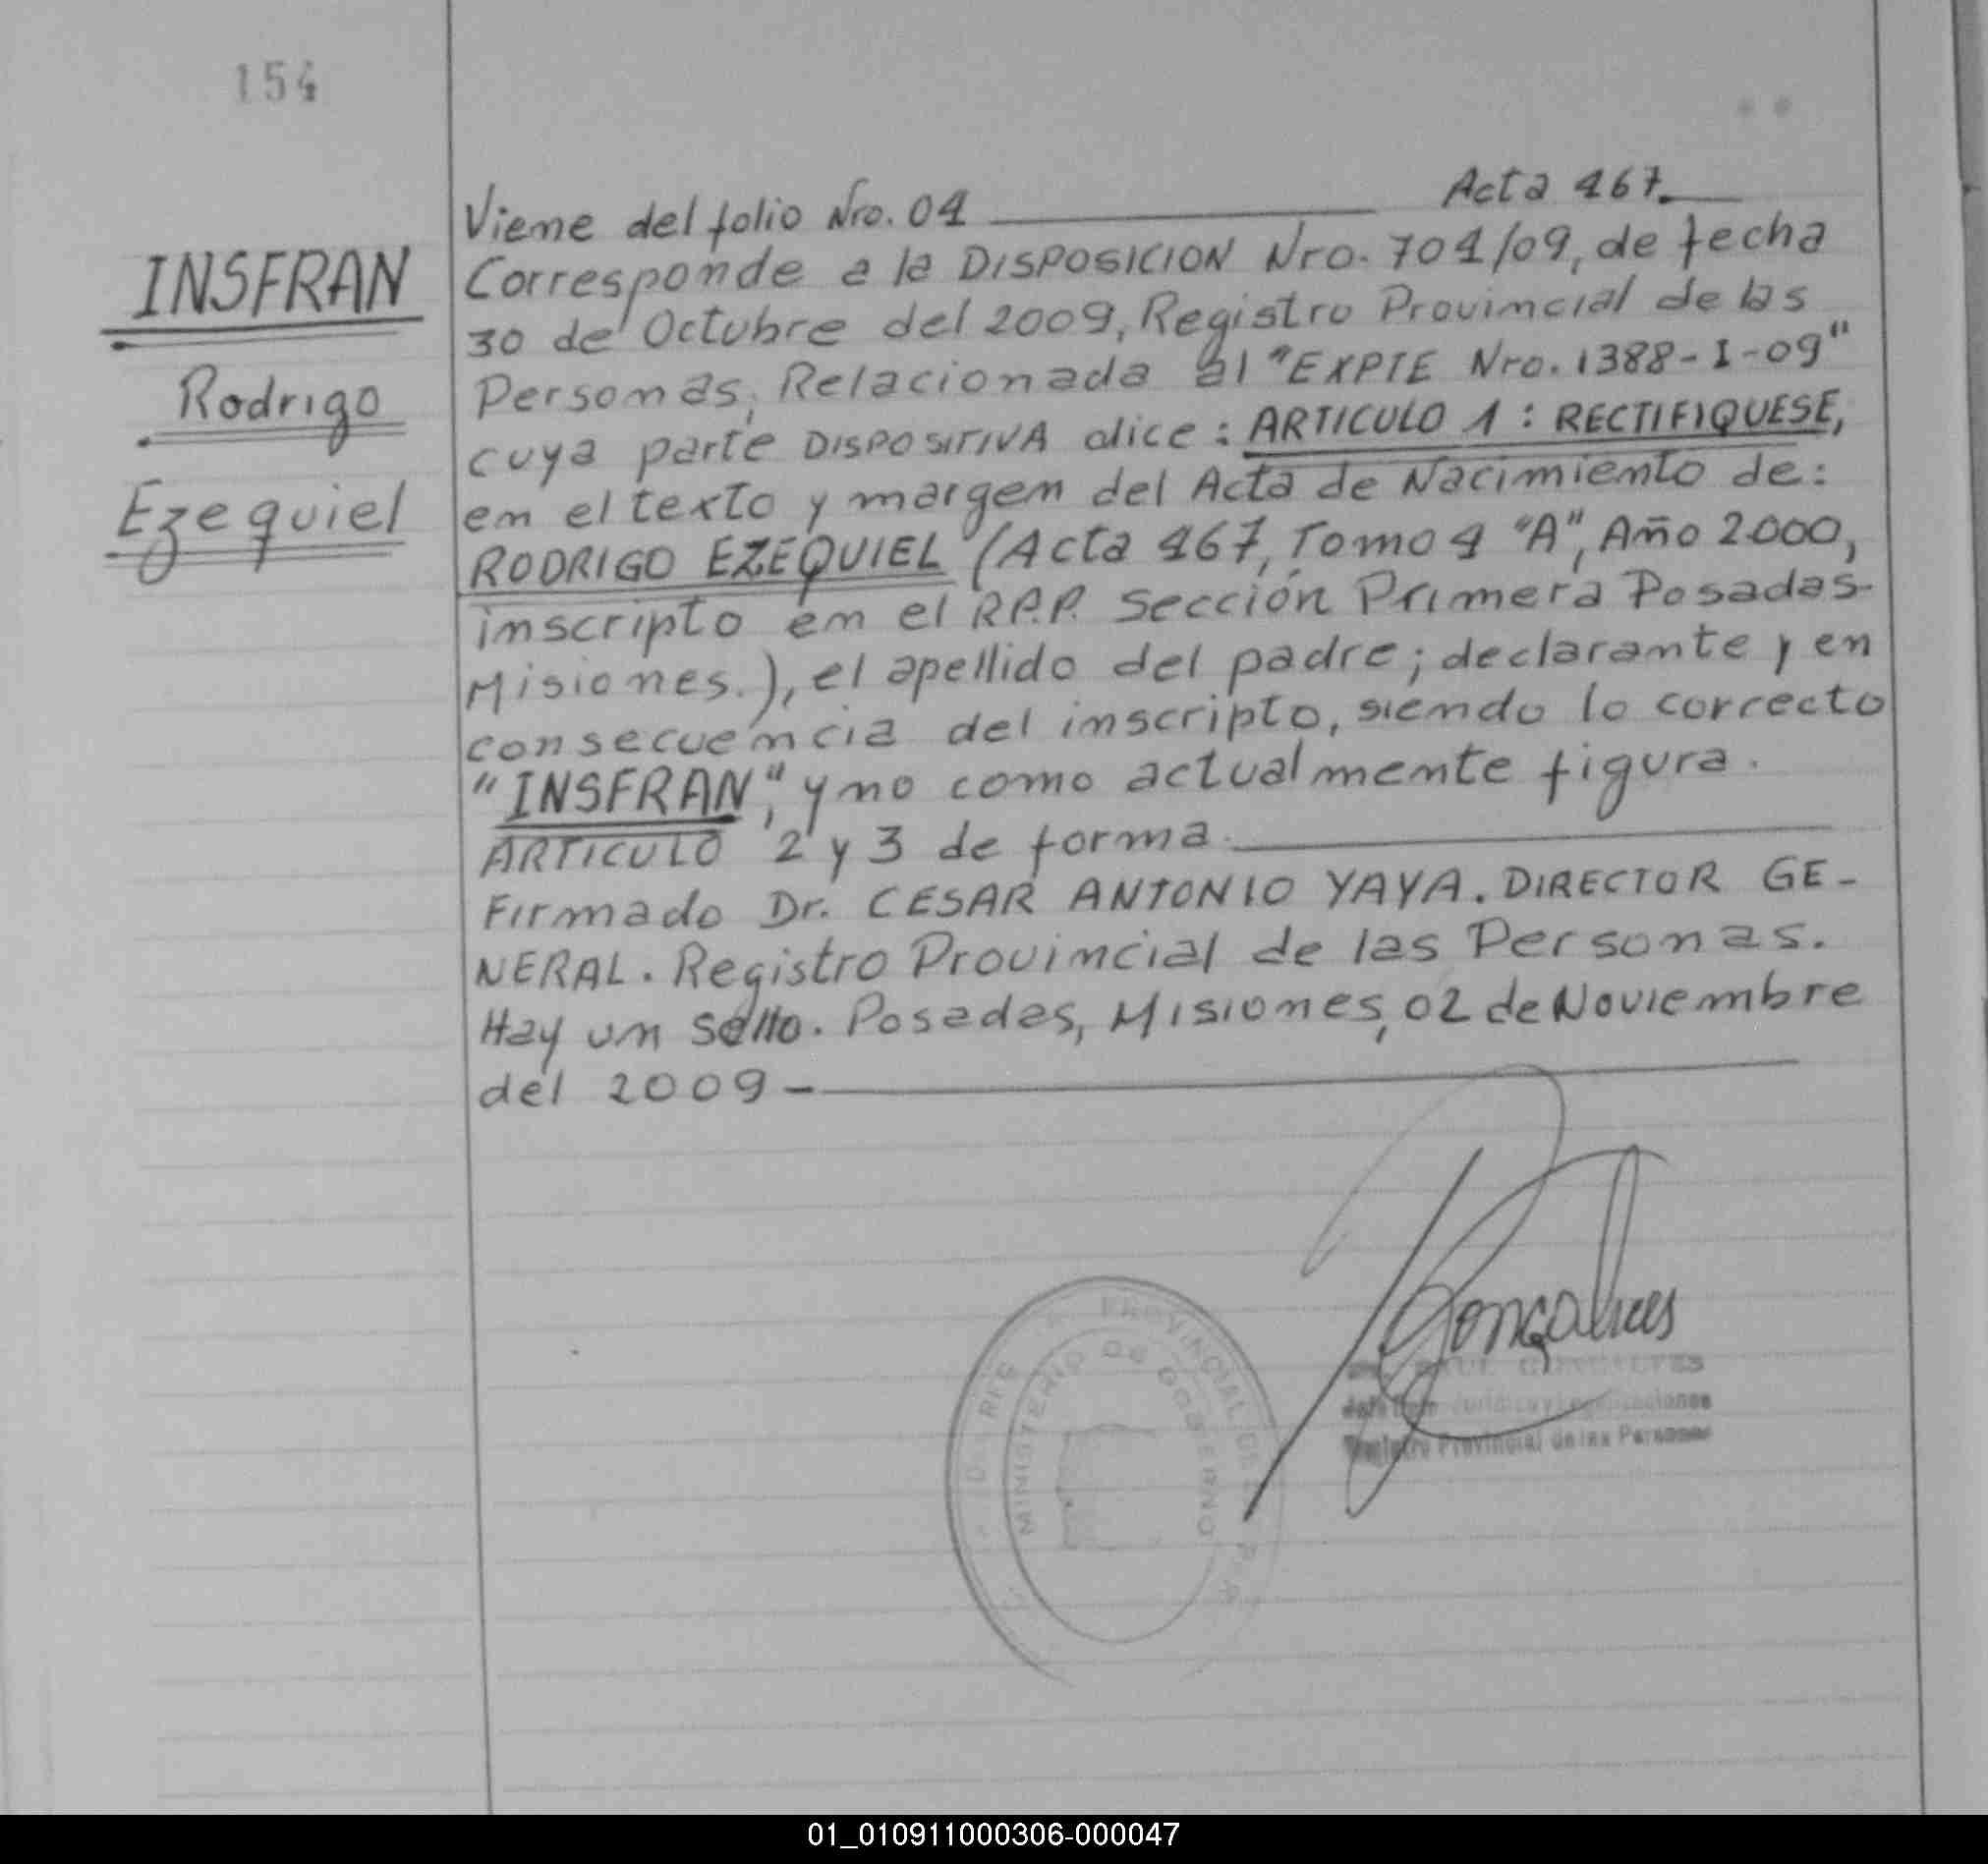 154
Acta 467.
Viene del folio Nro. 04
INSFRAN
Rodrigo
Ezequiel
Corresponde a la DISPOSICION Nro. 704/09, de fecha
30 de Octubre del 2009, Registro Provincial de las
Personas, Relacionada al "EXPTE Nro. 1388-I-09"
cuya parte DISPOSITIVA dice: ARTICULO 1: RECTIFIQUESE,
en el texto y margen del Acta de Nacimiento de:
RODRIGO EZEQUIEL (Acta 467, Tomo 4 "A", Año 2000,
inscripto en el R.P.P. Sección Primera Posadas-
Misiones.), el apellido del padre; declarante y en
consecuencia del inscripto, siendo lo correcto
"INSFRAN", y no como actualmente figura.
ARTICULO 2 y 3 de forma.
Firmado Dr. CESAR ANTONIO YAYA. DIRECTOR GE-
NERAL. Registro Provincial de las Personas.
Hay un sello. Posadas, Misiones, 02 de Noviembre
del 2009-
Gonçalves
PROVINCIAL DE
MINISTERIO DE GOBIERNO
Registro Provincial de las Personas
01_010911000306-000047